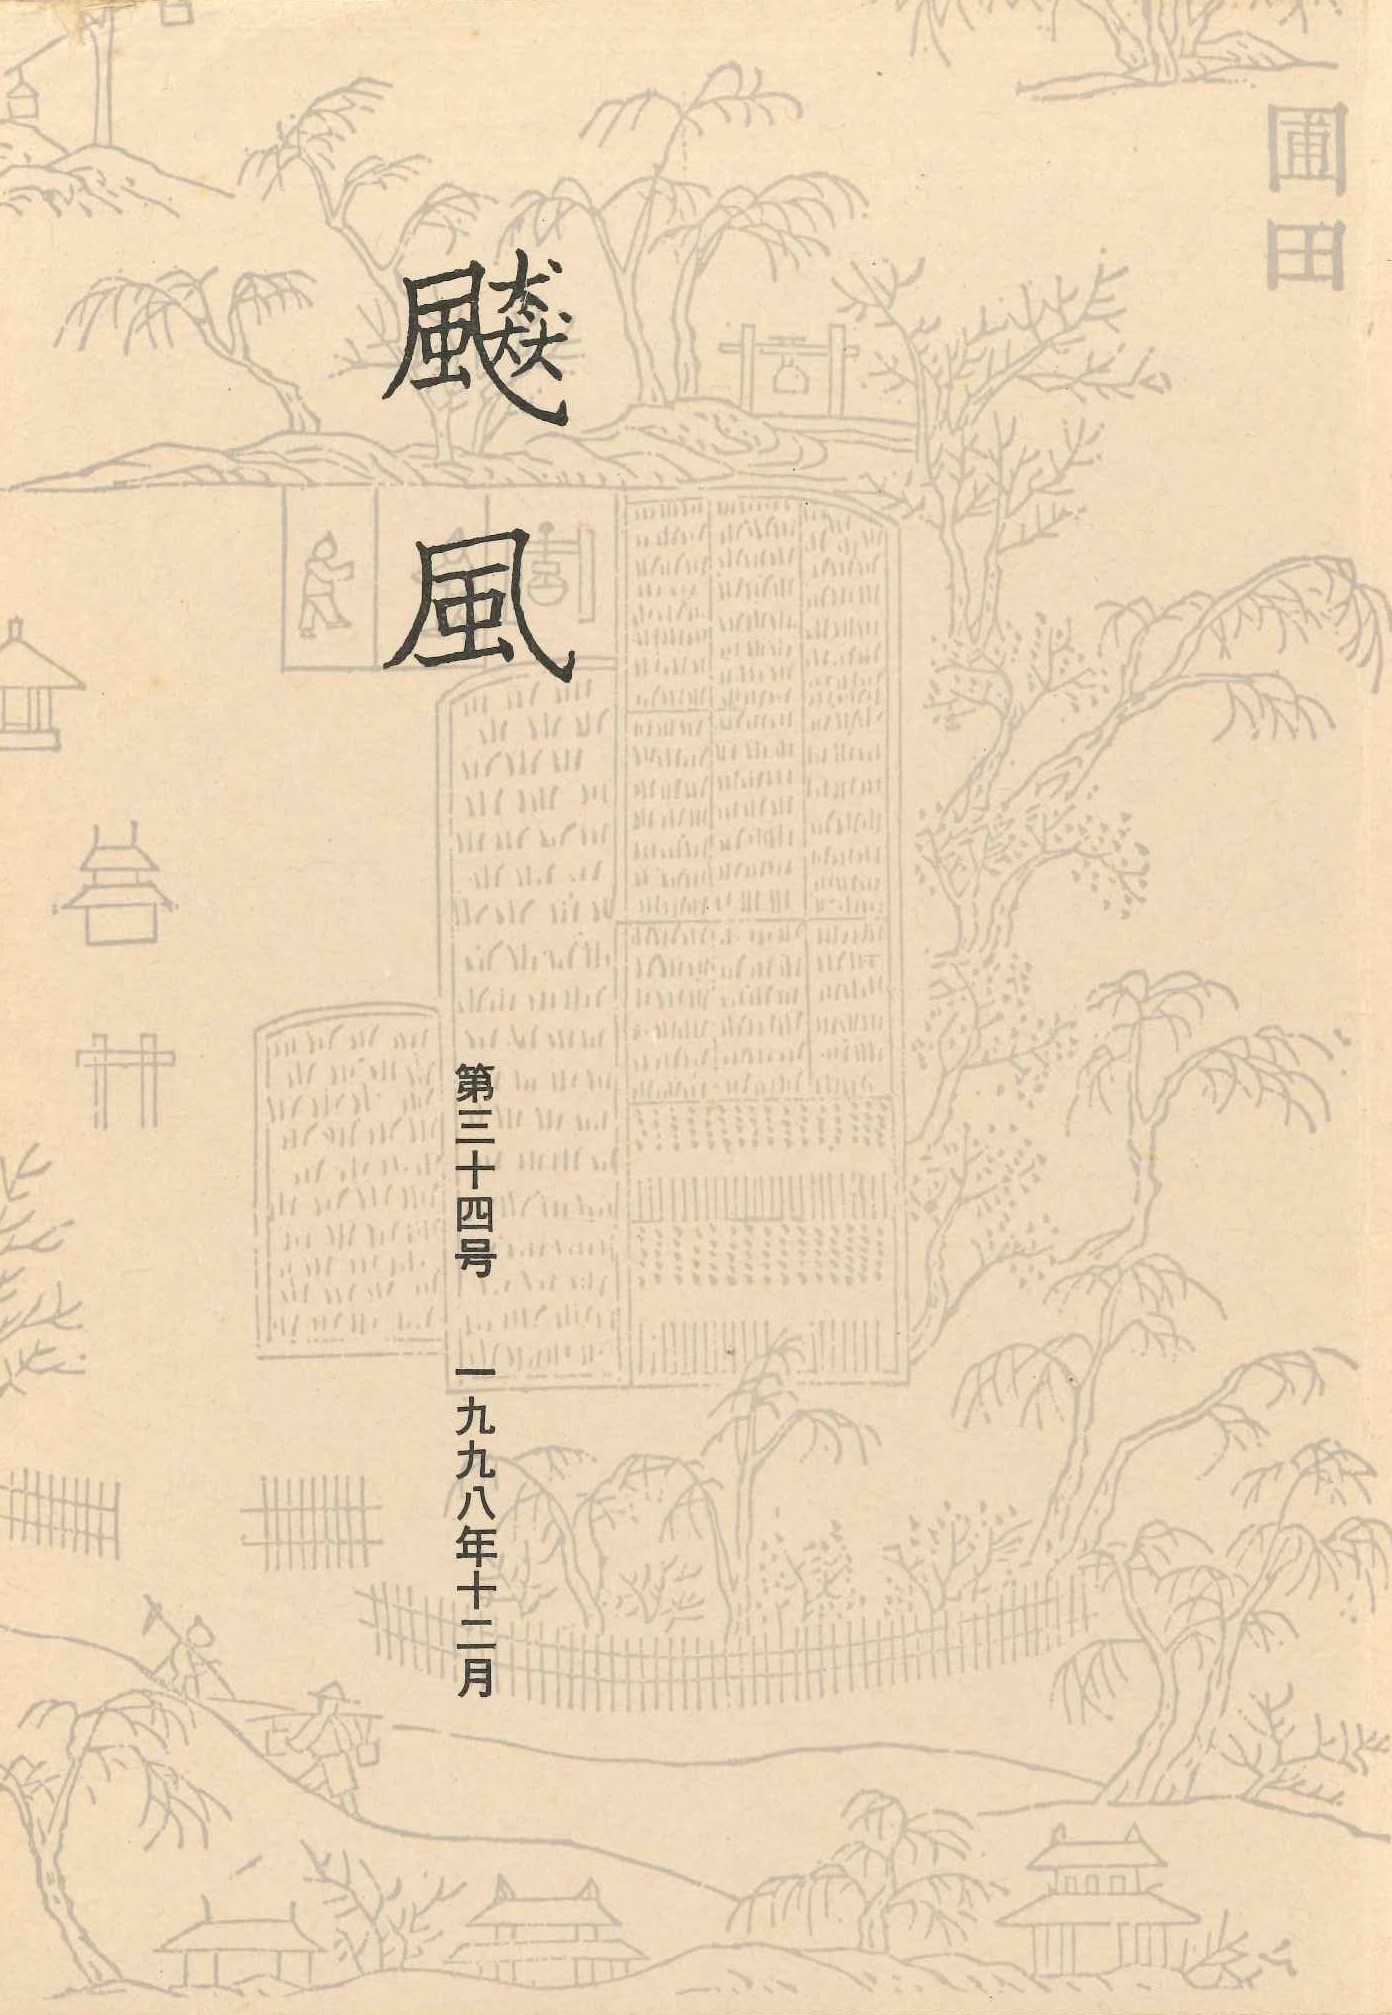 圃田
飇風
第三十四号 一九九八年十二月